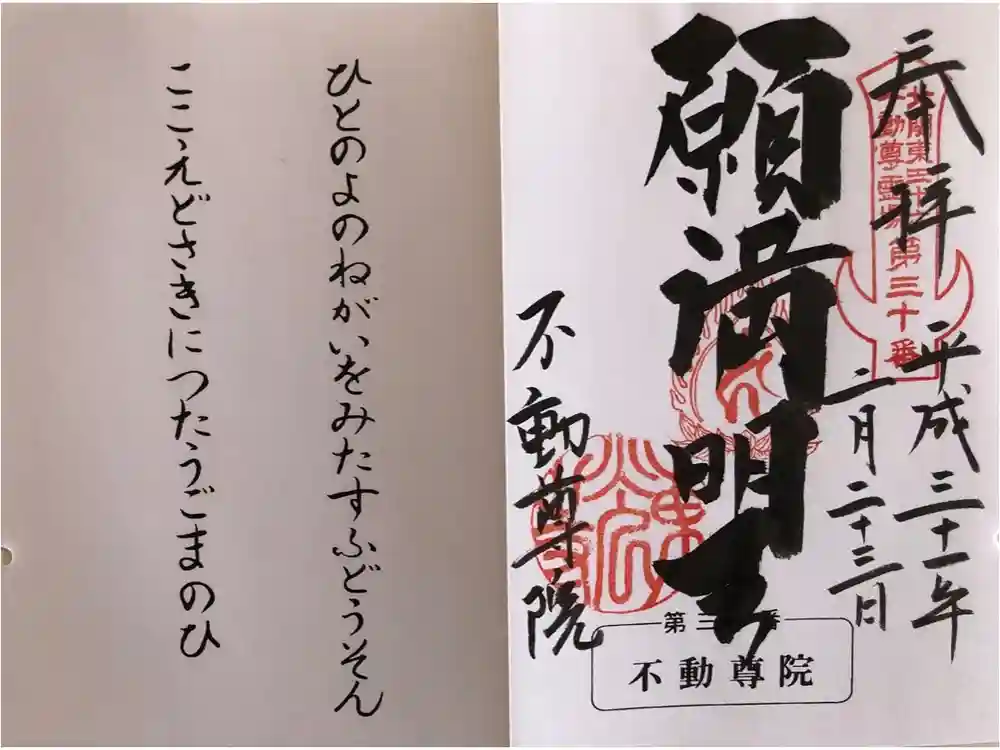 奉拝
平成三十一年
二月二十三日
北関東三十六
不動尊霊場第三十番
願満明王
不動尊院
第三十番
不動尊院
ひとのよのねがいをみたすふどうそん
こゝえどさきにつたうごまのひ